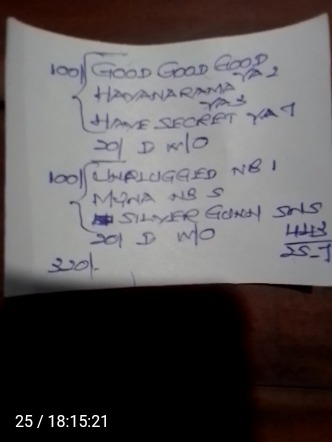 100/ GOOD GOOD GOOD YA2
HAVANARAMA YA3
HAVE SECRET YA7
20/ D W/O
100/ UNPLUGGED NB1
MYNA NB5
SILVER GUNN SN5
20/ D W/O
443
25-7
320/-
25 / 18:15:21